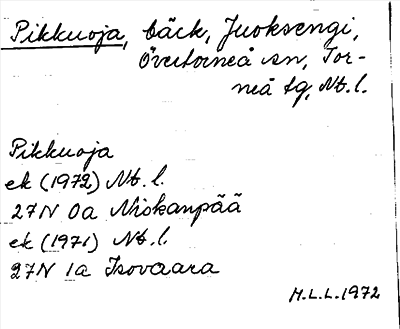 Pikkuoja, bäck, Juoksengi,
Övertorneå sn, Tor-
neå tg, Nb. l.
Pikkuoja
ek (1972) Nb. l.
27N 0a Niskanpää
ek (1971) Nb. l.
27N 1a Isovaara
H.L.L. 1972